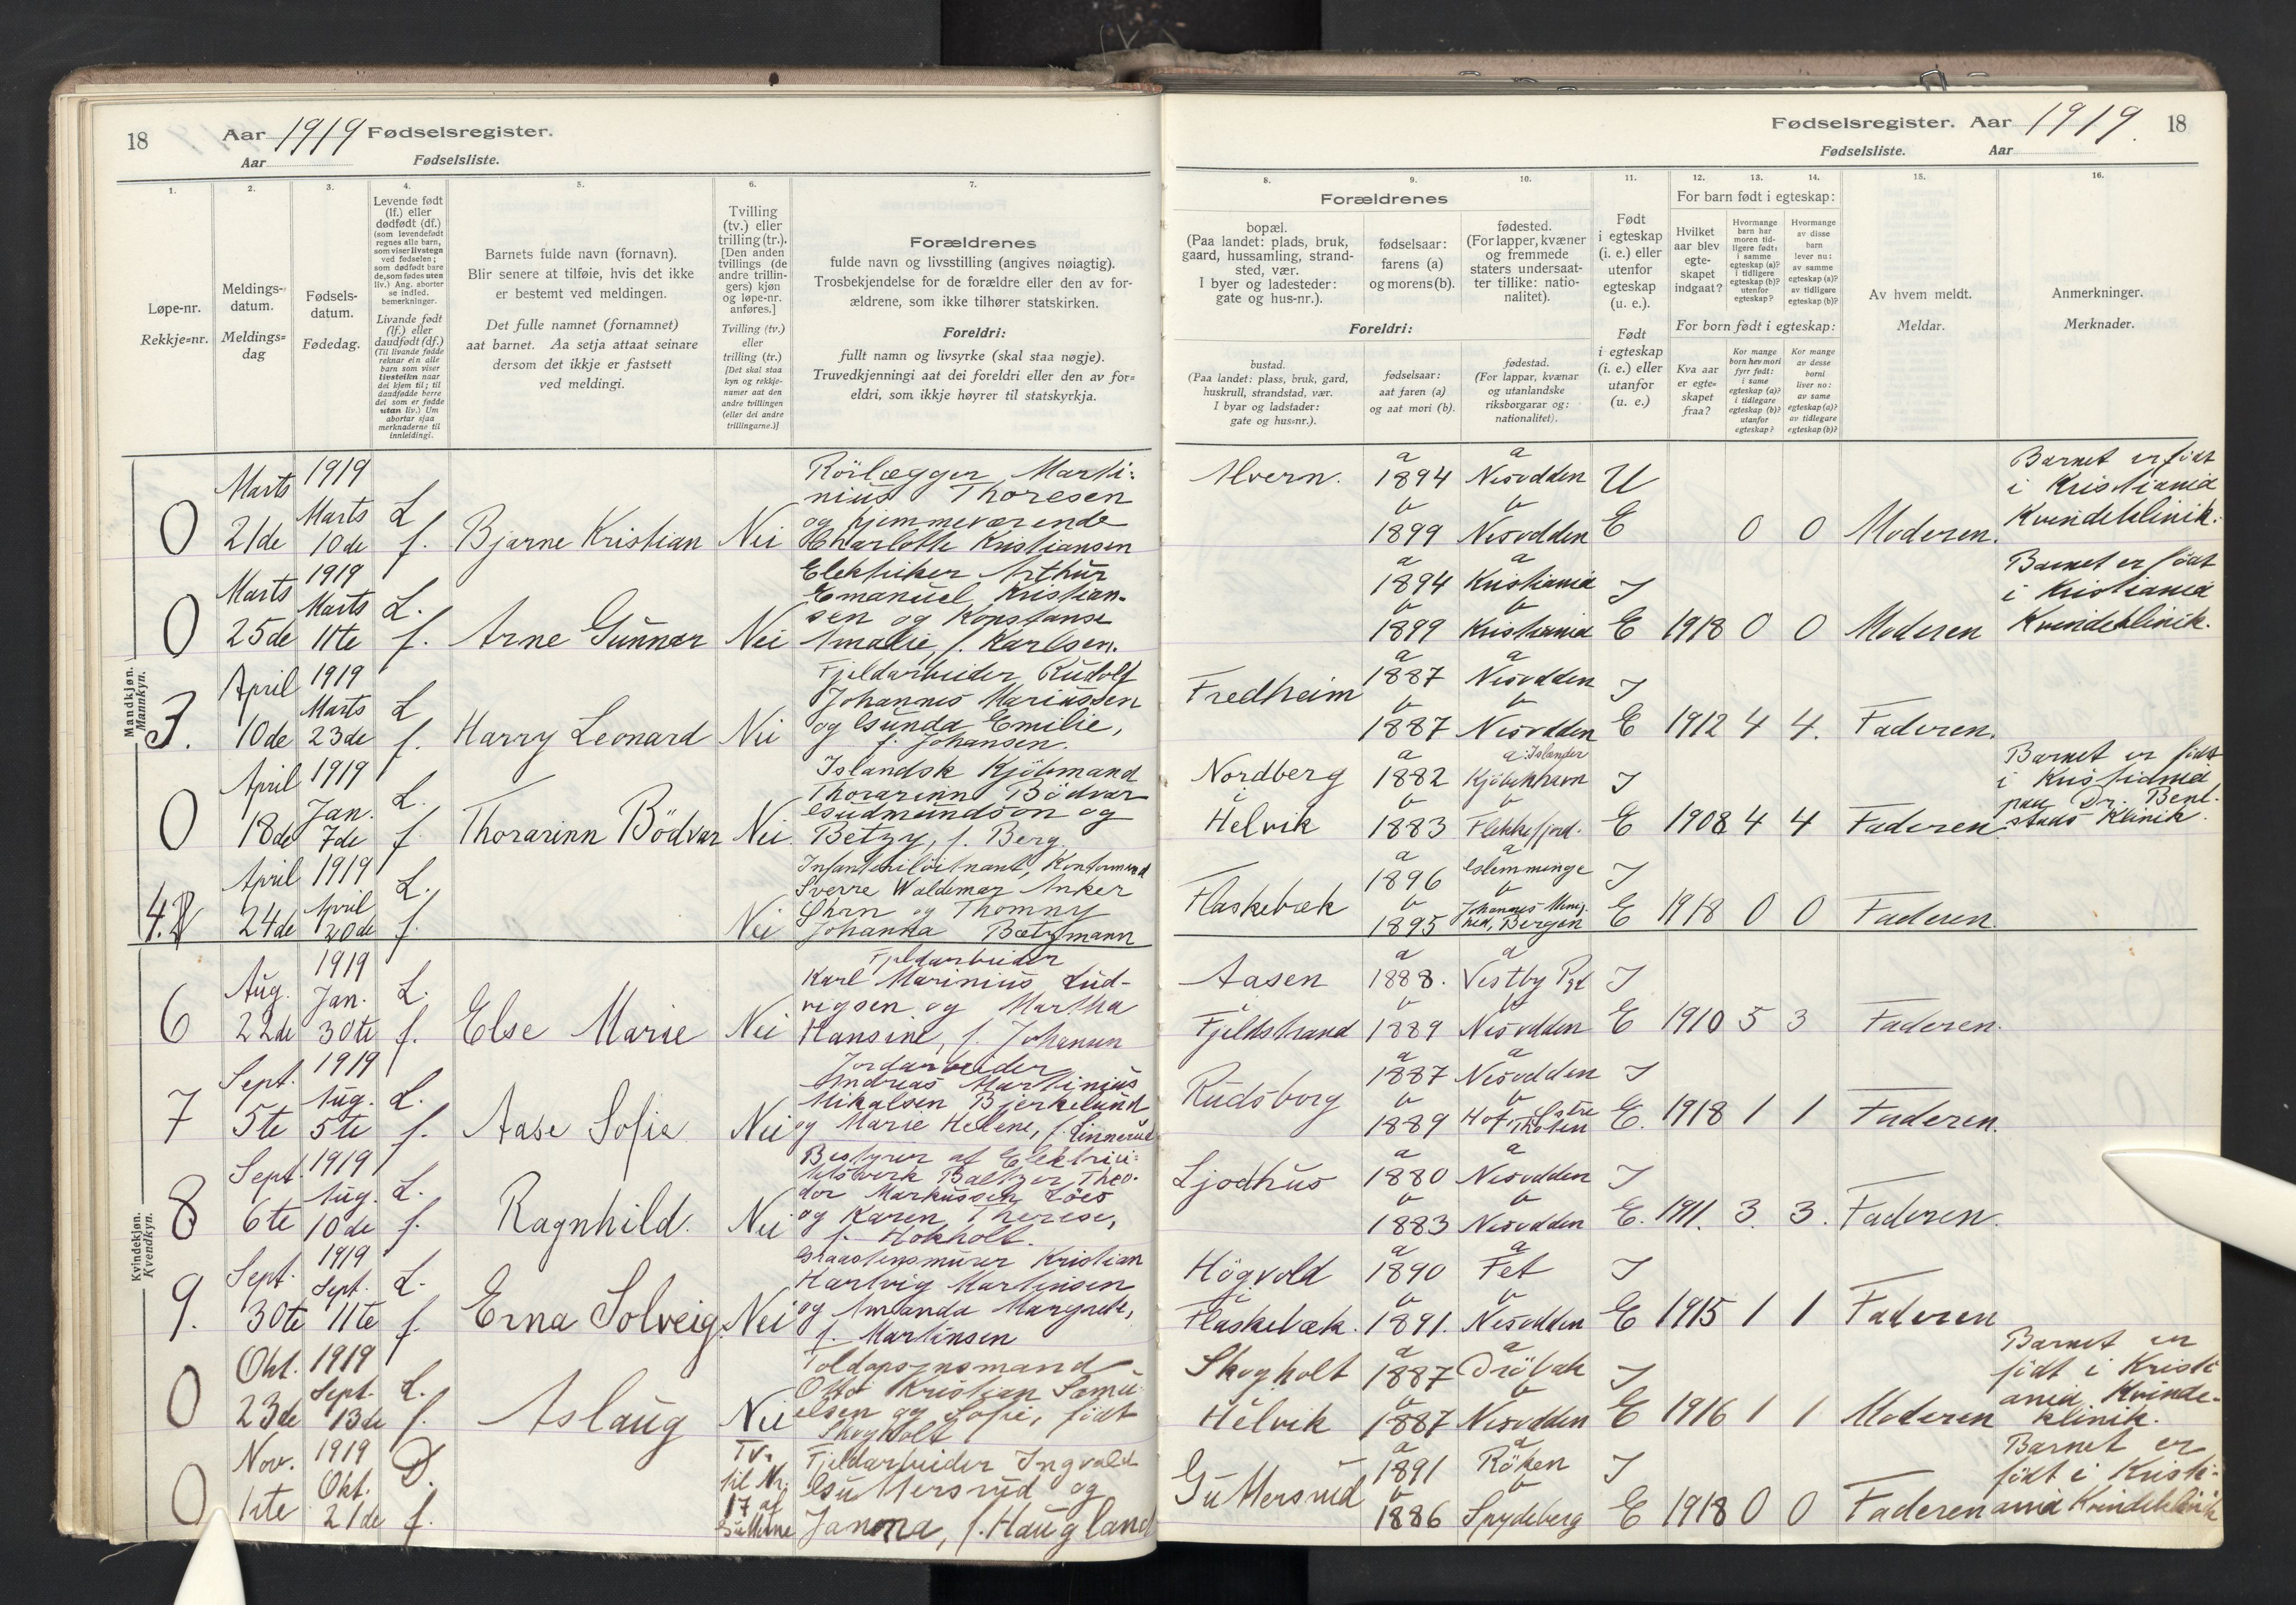 18
Aar 1919 Fødselsregister.
Aar
Fødselsliste.
1.
2.
3.
4.
5.
6.
7.
Løpe-nr.
Rekkje=nr.
Meldings-
datum.
Meldings=
dag
Fødsels-
datum.
Fødedag.
Levende født
(lf.) eller
dødfødt (df.)
(som levendefødt
regnes alle barn,
som viser livstegn
ved fødselen;
som dødfødt bare
de, som fødes uten
liv.) Ang. aborter
se indled.
bemerkninger.
Livande født
(lf.) eller
daudfødt (df.)
(Til livande fødde
reknar ein alle
barn som viser
livsteikn naar
dei kjem til; til
daudfødde berre
dei som er fødde
utan liv.) Um
abortar sjaa
merknaderne til
innleidingi.
Barnets fulde navn (fornavn).
Blir senere at tilføie, hvis det ikke
er bestemt ved meldingen.
Det fulle namnet (fornamnet)
aat barnet. Aa setja attaat seinare
dersom det ikkje er fastsett
ved meldingi.
Tvilling
(tv.) eller
trilling (tr.).
[Den anden
tvillings (de
andre trillin-
gers) kjøn
og løpe-nr.
anføres.]
Tvilling (tv.)
eller
trilling (tr.)
[Det skal staa
kyn og rekkje-
numer aat den
andre tvillingen
(eller dei andre
trillingarne.)]
Forældrenes
fulde navn og livsstilling (angives nøiagtig).
Trosbekjendelse for de forældre eller den av for-
ældrene, som ikke tilhører statskirken.
Foreldri:
fullt namn og livsyrke (skal staa nøgje).
Truvedkjenningi aat dei foreldri eller den av for=
eldri, som ikkje høyrer til statskyrkja.
Mandkjøn.
Mannkyn.
0 Marts 21de 1919 Marts 10de L. f. Bjarne Kristian Nei
Rörlægger Marti-
nius Thoresen
og hjemmeværende
Charlotte Kristiansen
0 Marts 25de 1919 Marts 11te L. f. Arne Gunnar Nei
Elektriker Arthur
Emanuel Kristian-
sen og Konstanse
Amalie, f. Karlsen.
3. April 10de 1919 Marts 23de L f. Harry Leonard Nei
Fjeldarbeider Rudolf
Johannes Mariussen
og Gunda Emilie,
f. Johansen.
0 April 18de 1919 Jan. 7de L. f. Thorarinn Bödvar Nei.
Islandsk Kjöbmand
Thorarinn Bödvar
Gudmundson og
Betzy, f. Berg
4. April 24de 1919 April 20de L. f. Nei
Sverre Waldmar Anker
og Thomny
Johanna
Kvindekjøn.
Kvendkyn.
6 Aug. 22de 1919 Jan. 30te L. f. Else Marie Nei
Fjeldarbeider
Karl Marinius Lud-
vigsen og Martha
Hansine, f. Johansen
7 Sept. 5te 1919 Aug. 5te L. f. Aase Sofie Nei
Jordarbeider
Andreas Martinius
Mikalsen Bjerkelund
og Marie Helene, f. Linnerud
8 Sept. 6te 1919 Aug. 10de L. f. Ragnhild. Nei
Bestyrer af Elektrici-
tetsverk Baltzer Theo-
dor Markussen Löes
og Karen Therese,
f. Hokholt.
9. Sept. 30te 1919 Sept. 11te L. f. Erna Solveig. Nei
Graastensmurer Kristian
Hartvig Martinsen
og Amanda Margrethe,
f. Martinsen
0 Okt. 23de 1919 Sept. 13de L. f. Aslaug Nei
Toldopsynsmand
Otto Kristian Samu-
elsen og Sofie, født
Skogholt
0 Nov. 1ste 1919 Okt. 21de D. f.
Tv. til Nr. 17 af Guttene
Fjeldarbeider Ingvald
Guttersrud og
Janna, f. Haugland
Fødselsregister. Aar 1919. 18
Fødselsliste. Aar
8.
9.
10.
11.
12.
13.
14.
15.
16.
Forældrenes
bopæl.
(Paa landet: plads, bruk,
gaard, hussamling, strand-
sted, vær.
I byer og ladesteder:
gate og hus-nr.).
fødselsaar:
farens (a)
og morens (b).
fødested.
(For lapper, kvæner
og fremmede
staters undersaat-
ter tillike: natio-
nalitet).
Foreldri:
bustad.
(Paa landet: plass, bruk, gard,
huskrull, strandstad, vær.
I byar og ladstader:
gate og hus=nr.).
fødselsaar:
aat faren (a)
og aat mori (b).
fødestad.
(For lappar, kvænar
og utanlandske
riksborgarar og:
nationalitet).
Født
i egteskap
(i. e.) eller
utenfor
egteskap
(u. e.).
Født
i egteskap
(i. e.) eller
utanfor
(u. e.)
For barn født i egteskap:
Hvilket
aar blev
egte-
skapet
indgaat?
Hvormange
barn har
moren tid-
ligere født:
i samme
egteskap (a)?
i tidligere
egteskap (b)?
utenfor
egteskap?
Hvormange
av disse
barn
lever nu:
av samme
egteskap (a)?
av tidligere
egteskap (b)?
For born født i egteskap:
Kva aar
er egte=
skapet
fraa?
Kor mange
born hev mori
fyrr født:
i same
egteskap (a)?
i tidlegare
egteskap (b)?
utanfor
egteskap?
Kor mange
av desse
borni
liver no:
av same
egteskap (a)?
av tidlegare
egteskap (b)?
Av hvem meldt.
Meldar.
Anmerkninger.
Merknader.
Alvern. a 1894 a Nesodden U
b 1899 b Nesodden E 0 0 Moderen.
Barnet er født
i Kristiania
Kvindeklinik.
a 1894 a Kristiania I
b 1899 b Kristiania E 1918 0 0 Moderen
Barnet er født
i Kristiania
Kvindeklinik.
Fredheim a 1887 a Nesodden I
b 1887 b Nesodden E 1912 4 4. Faderen.
Nordberg a 1882 a: Islænder Kjöbenhavn I
i Helvik b 1883 b Flekkefjord. E 1908 4 4 Faderen.
Barnet er født
i Kristiania
paa Dr. Bent-
stads Klinik.
Flaskebæk a 1896 a Glemminge I
b 1895 b Johannes Menig-
hed, Bergen E 1918 0 0 Faderen.
Aasen a 1888. a Vestby Pgd I
Fjeldstrand b 1889 b Nesodden E 1910 5 3 Faderen.
Rudsborg a 1887 a Nesodden I
b 1889 b Hof, Östre Thoten E. 1918 1 1 Faderen.
Ljodhus a 1880 a Nesodden I
b 1883 b Nesodden E. 1911. 3. 3. Faderen.
Högvold a 1890 a Fet I
i Flaskebæk. b 1891. b Nesodden E 1915 1 1 Faderen
Skogholt a 1887 a Dröbak I
Helvik b 1887 b Nesodden E 1916 1 1 Moderen
Barnet er
født i Kristi-
ania Kvinde-
klinik.
Guttersrud a 1891 a Röken I
b 1886 b Spydeberg E 1918 0 0 Faderen
Barnet er
født i Kristi-
ania Kvindeklinik